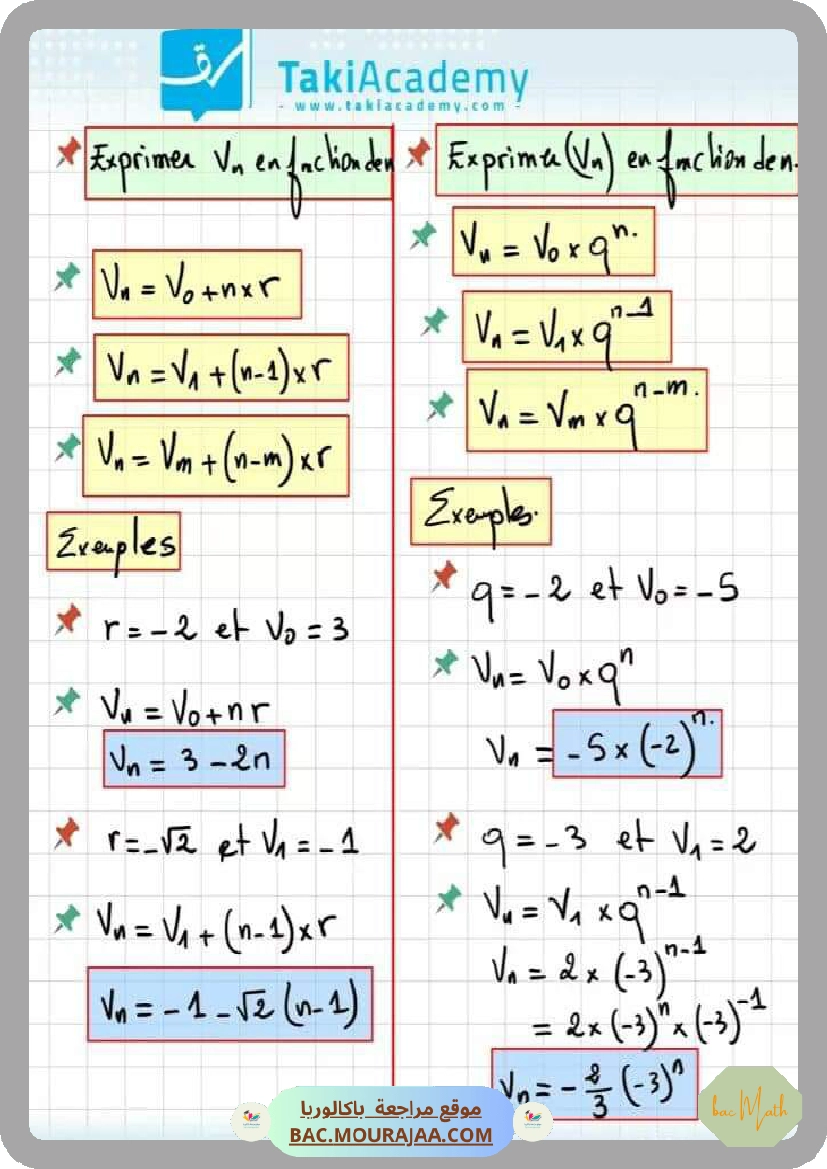 TakiAcademy
- www.takiacademy.com -
Exprimer Vn en fnction den
Vn = V0 + n x r
Vn = V1 + (n-1) x r
Vn = Vm + (n-m) x r
Exemples
r = -2 et V0 = 3
Vn = V0 + nr
Vn = 3 - 2n
r = -√2 et V1 = -1
Vn = V1 + (n-1) x r
Vn = -1 - √2 (n-1)
Exprimer (Vn) en fonction de n.
Vn = V0 x q^n.
Vn = V1 x q^n-1
Vn = Vm x q^n-m.
Exemples.
q = -2 et V0 = -5
Vn = V0 x q^n
Vn = -5 x (-2)^n.
q = -3 et V1 = 2
Vn = V1 x q^n-1
Vn = 2 x (-3)^n-1
= 2 x (-3)^n x (-3)^-1
Vn = -2/3 (-3)^n
موقع مراجعة باكالوريا
BAC.MOURAJAA.COM
bac Math